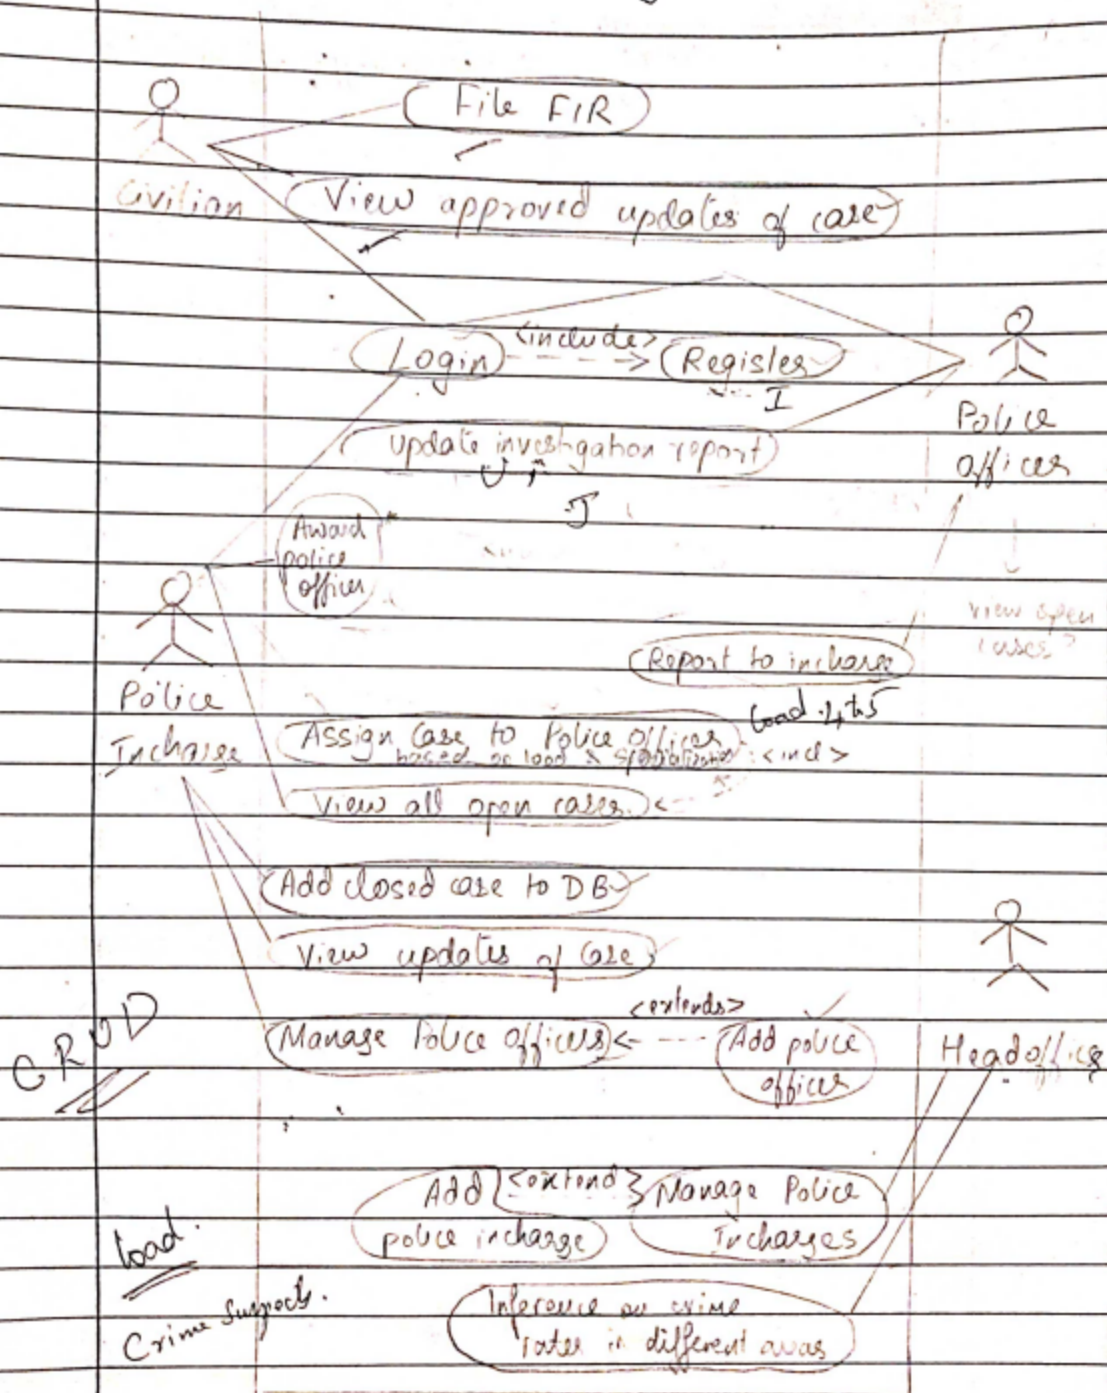 File FIR
Civilian
View approved updates of case
<include>
Login
Register
I
Police
officer
update investigation report
Award *
police
officer
view open
cases?
Report to incharge
Police
Incharge
load
Assign Case to Police Officer
based on load & specialization
<incl>
View all open cases
Add closed case to DB
View updates of Case
<extends>
Manage Police Officers
Add police
officer
Headoffice
CRUD
Add
<extend>
Manage Police
police incharge
Incharges
load.
Crime Suspects.
Inference on crime
rates in different areas